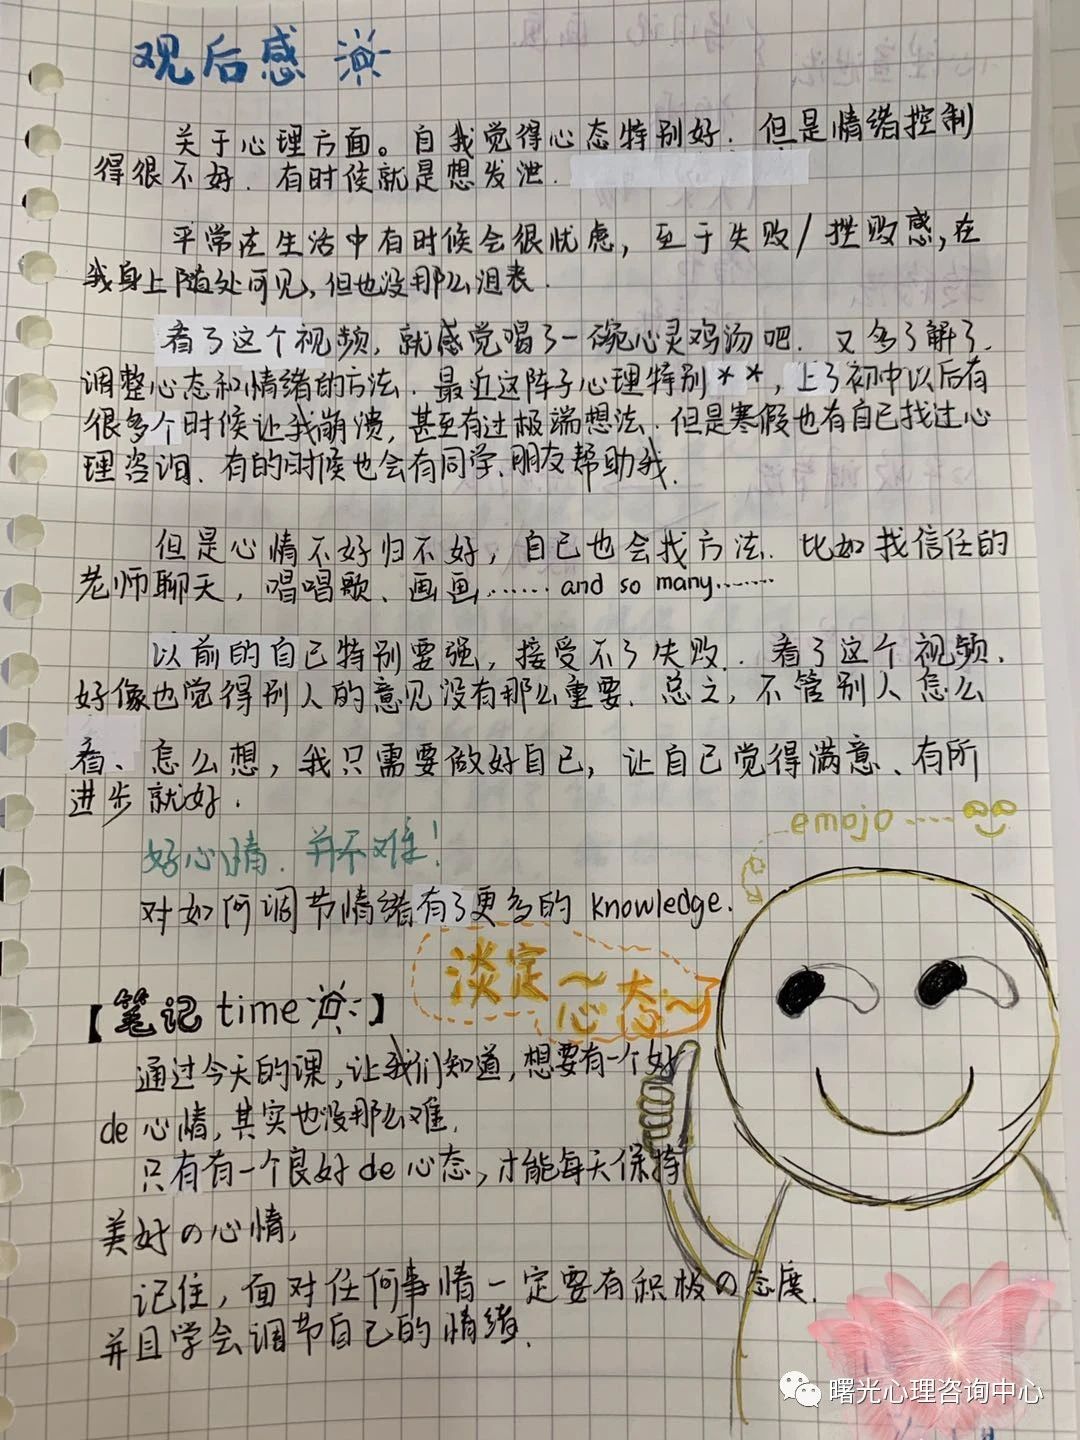 观后感
关于心理方面。自我觉得心态特别好.但是情绪控制
得很不好.有时候就是想发泄.
平常在生活中有时候会很忧虑，至于失败/挫败感,在
我身上随处可见,但也没那么沮丧.
看了这个视频,就感觉喝了一碗心灵鸡汤吧.又多了解了.
调整心态和情绪的方法.最近这阵子心理特别**,上了初中以后有
很多个时候让我崩溃,甚至有过极端想法.但是寒假也有自己找过心
理咨询.有的时候也会有同学、朋友帮助我.
但是心情不好归不好，自己也会找方法.比如找信任的
老师聊天，唱唱歌、画画…… and so many……
以前的自己特别要强，接受不了失败..看了这个视频.
好像也觉得别人的意见没有那么重要.总之，不管别人怎么
看、怎么想，我只需要做好自己，让自己觉得满意、有所
进步就好.
emojo ....
好心情.并不难!
对如何调节情绪有了更多的 knowledge.
淡定~
心态~
【笔记time】
通过今天的课,让我们知道,想要有一个好
de 心情,其实也没那么难.
只有有一个良好de心态,才能每天保持
美好の心情,
记住，面对任何事情一定要有积极の态度.
并且学会调节自己的情绪.
曙光心理咨询中心